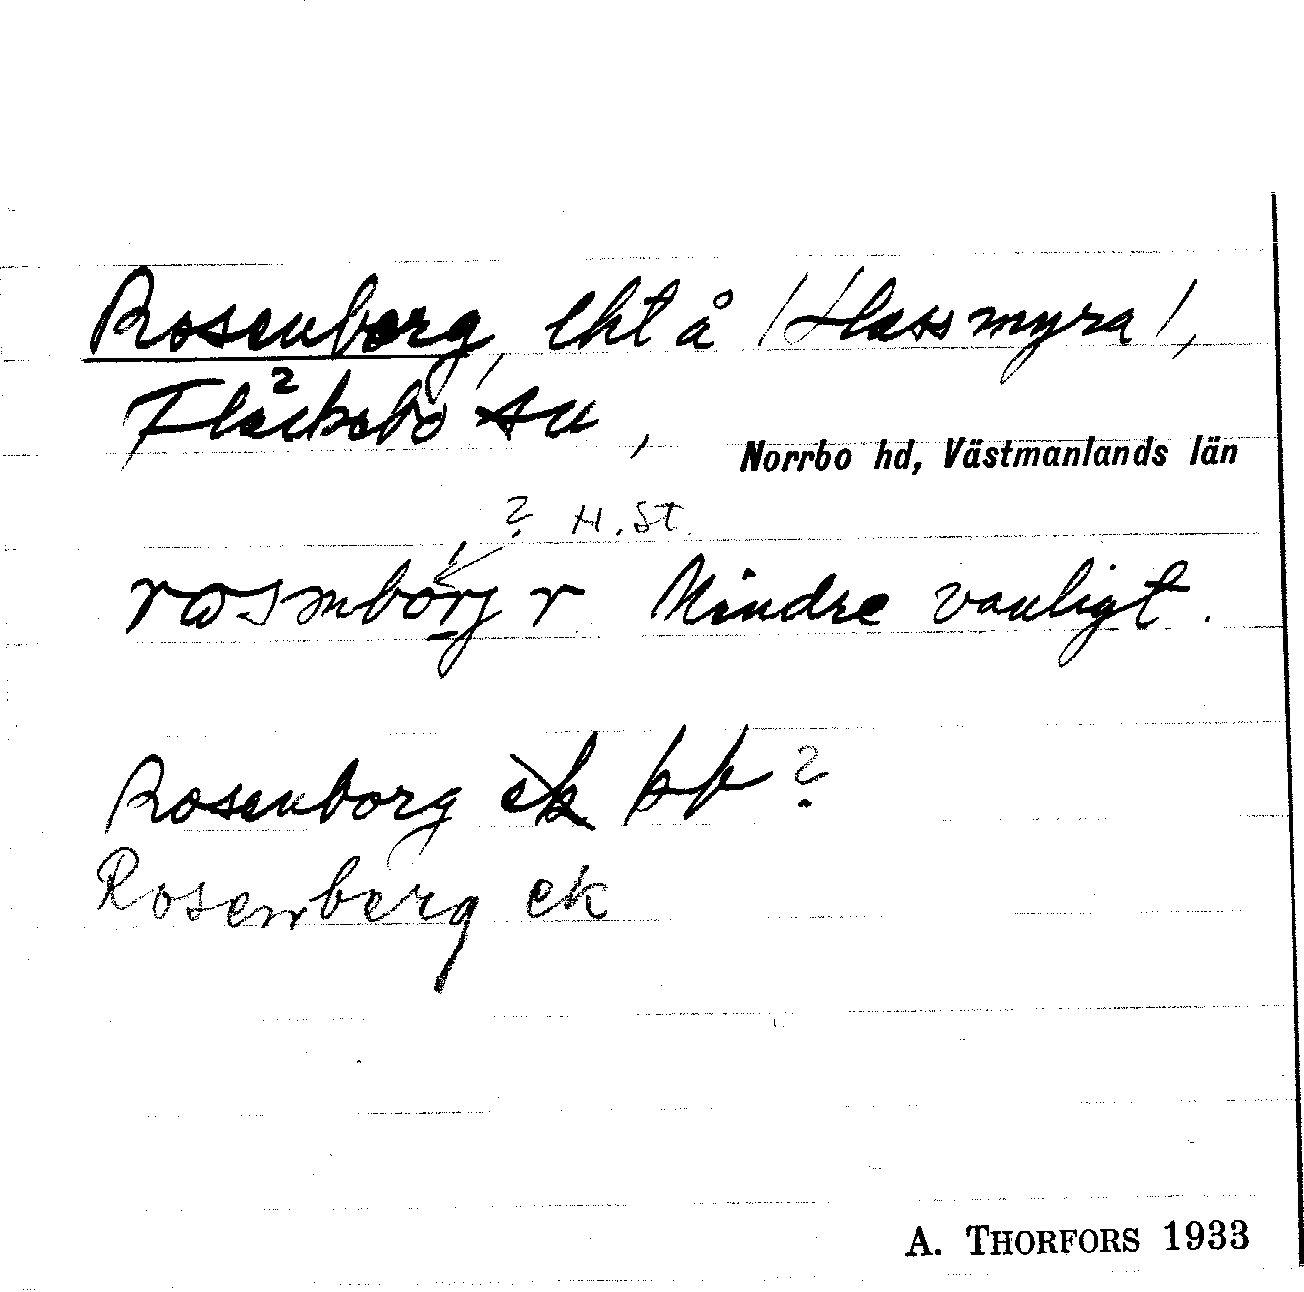 Rosenberg, lht å /Hassmyra/,
Fläckebo sn,
Norrbo hd, Västmanlands län
? H.St.
rosmborj r Mindre vanligt.
Rosenborg ek pp ?
Rosenberg ek
A. THORFORS 1933